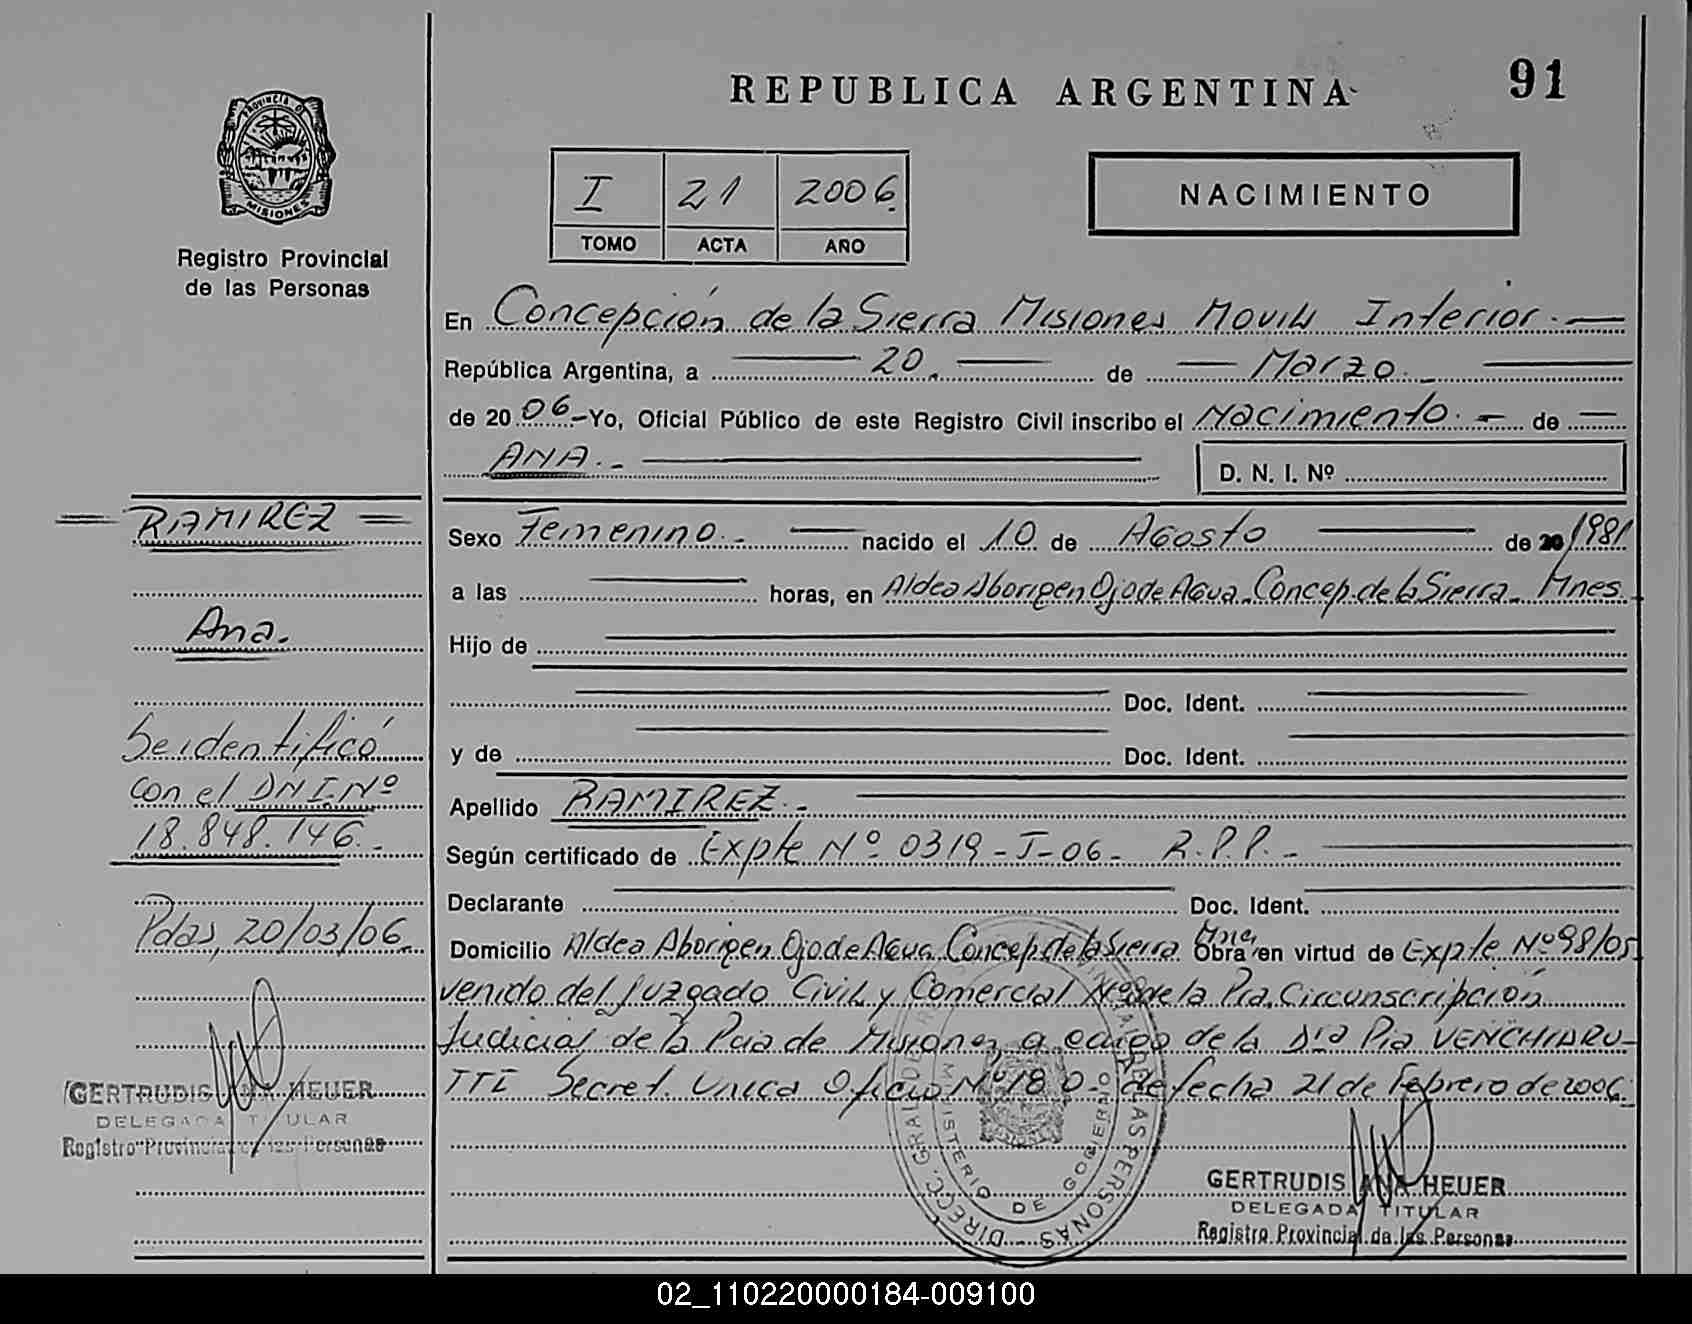 REPUBLICA ARGENTINA
91
PROVINCIA D
MISIONES
Registro Provincial
de las Personas
I 21 2006.
TOMO ACTA AÑO
NACIMIENTO
En Concepción de la Sierra Misiones Movil Interior.
República Argentina, a 20. de Marzo.
de 20 06 Yo, Oficial Público de este Registro Civil inscribo el Nacimiento. de
ANA.
D. N. I. Nº
RAMIREZ
Ana.
Se identificó
con el DNI.Nº
18.848.146.
Pdas, 20/03/06
GERTRUDIS ANA HEUER
DELEGADA TITULAR
Registro Provincial de las Personas
Sexo Femenino. nacido el 10 de Agosto de 20 1981
a las horas, en Aldea Aborigen Ojo de Agua. Concep. de la Sierra. Mnes.
Hijo de
Doc. Ident.
y de Doc. Ident.
Apellido RAMIREZ.
Según certificado de Expte Nº 0319-I-06- R.P.P.
Declarante Doc. Ident.
Domicilio Aldea Aborigen Ojo de Agua Concep de la Sierra Mnes Obra en virtud de Expte. Nº 98/05
venido del Juzgado Civil y Comercial Nº de la Pra. Circunscripción
Judicial de la Pcia de Misiones a cargo de la Dra Pia VENCHIARU-
TTI Secret. Unica Oficio Nº 180 de fecha 21 de Febrero de 2006.
DIRECC. GRAL. DE LAS PERSONAS
MINISTERIO DE GOBIERNO
GERTRUDIS ANA HEUER
DELEGADA TITULAR
Registro Provincial de las Personas
02_110220000184-009100